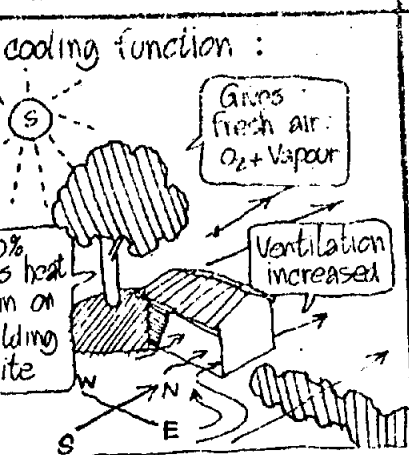 cooling function :
S
Gives
fresh air :
O2 + Vapour
Ventilation
increased
0%
s heat
in on
lding
ite
W
N
S
E